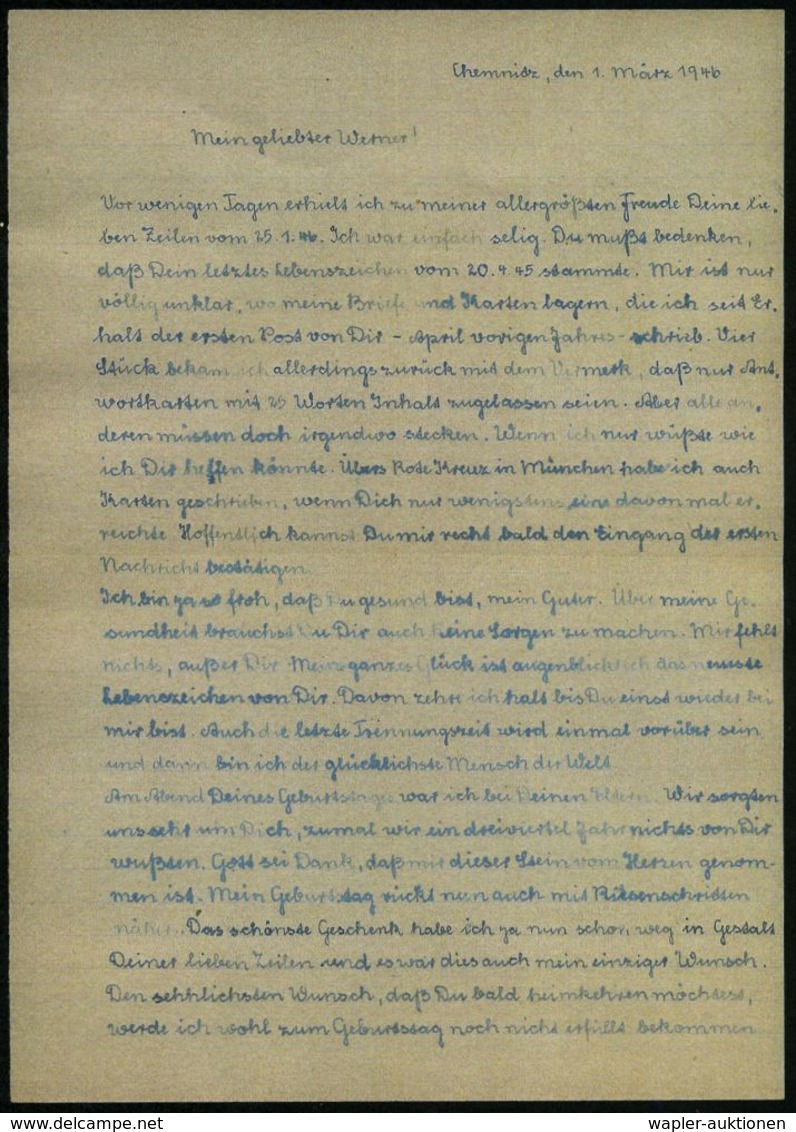 Chemnitz, den 1. März 1946
Mein geliebter Werner!
Vor wenigen Tagen erhielt ich zu meiner allergrößten Freude Deine lie-
ben Zeilen vom 25.1.46. Ich war einfach selig. Du mußt bedenken,
daß Dein letztes Lebenszeichen vom 20.4.45 stammte. Mir ist nur
völlig unklar, wo meine Briefe und Karten lagern, die ich seit Er-
halt der ersten Post von Dir – April vorigen Jahres – schrieb. Vier
Stück bekam ich allerdings zurück mit dem Vermerk, daß nur Ant-
wortkarten mit 25 Worten Inhalt zugelassen seien. Aber alle an-
deren müssen doch irgendwo stecken. Wenn ich nur wüßte wie
ich Dir helfen könnte. Übers Rote Kreuz in München habe ich auch
Karten geschrieben, wenn Dich nur wenigstens eine davon mal er-
reichte. Hoffentlich kannst Du mir recht bald den Eingang der ersten
Nachricht bestätigen.
Ich bin ja so froh, daß Du gesund bist, mein Guter. Über meine Ge-
sundheit brauchst Du Dir auch keine Sorgen zu machen. Mir fehlt
nichts, außer Dir. Mein ganzes Glück ist augenblicklich das neueste
Lebenszeichen von Dir. Davon zehre ich halt bis Du einst wieder bei
mir bist. Auch die letzte Trennungszeit wird einmal vorüber sein
und dann bin ich der glücklichste Mensch der Welt.
Am Abend Deines Geburtstages war ich bei Deinen Eltern. Wir sorgten
uns sehr um Dich, zumal wir ein dreiviertel Jahr nichts von Dir
wußten. Gott sei Dank, daß mir dieser Stein vom Herzen genom-
men ist. Mein Geburtstag rückt nun auch mit Riesenschritten
näher. Das schönste Geschenk habe ich ja nun schon weg in Gestalt
Deiner lieben Zeilen und es war dies auch mein einziger Wunsch.
Den sehnlichsten Wunsch, daß Du bald heimkehren möchtest,
werde ich wohl zum Geburtstag noch nicht erfüllt bekommen
wapler-auktionen